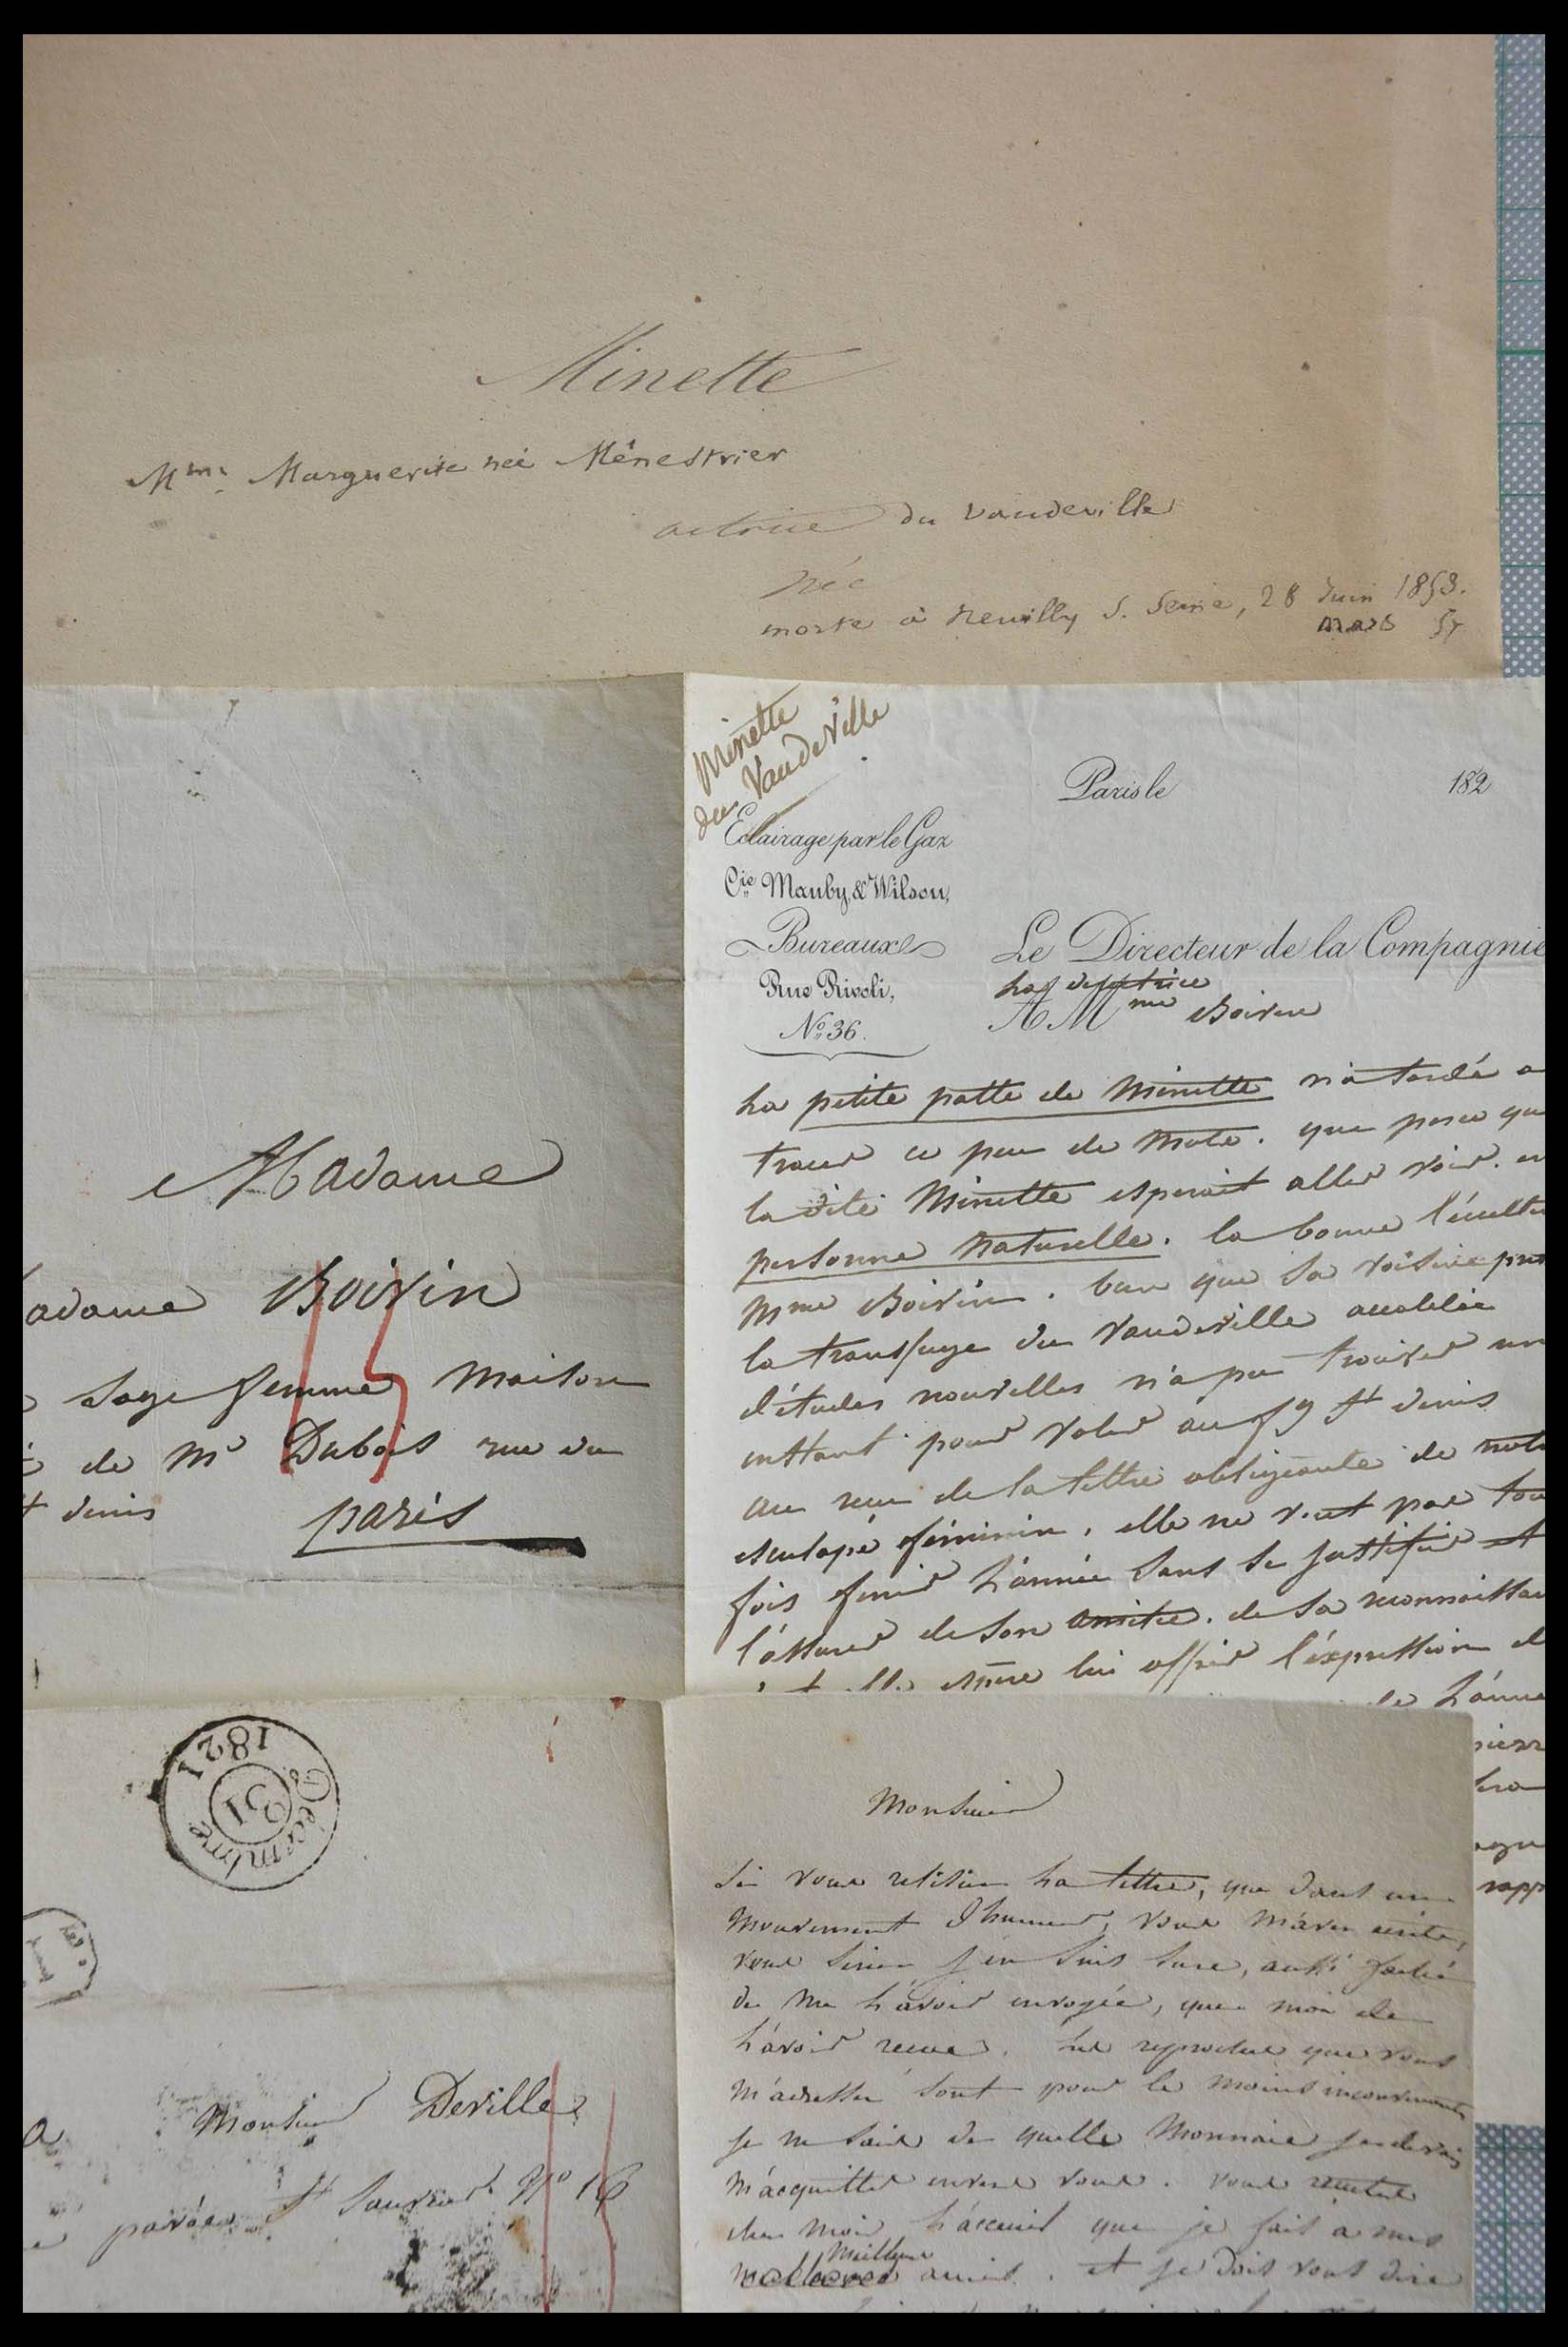 Minette
Mme Marguerite née Ménestrier
actrice du vaudeville
née
morte à Neuilly s. Seine, 28 Juin 1853.
mars 57
Minette
du Vaudeville
Paris le 182
Eclairage par le Gaz
Cie Manby, & Wilson,
Bureaux
Rue Rivoli,
No. 36.
Le Directeur de la Compagnie
A Mme Boivin
La petite patte de Minette n'a tardé a
tracer ce peu de mots. que parce qu
la dite Minette esperait aller voir. en
personne naturelle. la bonne l'éxcellen
Mme Boivin. bien que sa voisine
la transfuge du Vaudeville accablée
d'études nouvelles n'a pu trouver un
instant pour voler au fg St denis
au reçu de la lettre obligeante de notr
esculape féminin. elle ne veut pas tou
fois finir l'année sans se justifier et
l'assurer de son amitié. de sa reconnoissan
et elle espère lui offrir l'éxpression d
de l'anné
Madame
adame Boivin
sage femme Maison
de Mr Dubois rue du
t denis
paris
Décembre 31 1821
Monsieur Deville
St Sauveur No 16
Monsieur
Si vous relisiez la lettre, que dans un
mouvement d'humeur, vous m'avez écrite,
vous seriez j'en suis sure, aussi faché
de me l'avoir envoyée, que moi de
l'avoir recue. Les reproches que vous
m'adressez sont pour le moins inconvenants
je ne sais de quelle monnaie je devrais
m'acquitter envers vous. vous
chez moi l'accueil que je fais à mes
meilleurs
amis. et je dois vous dire